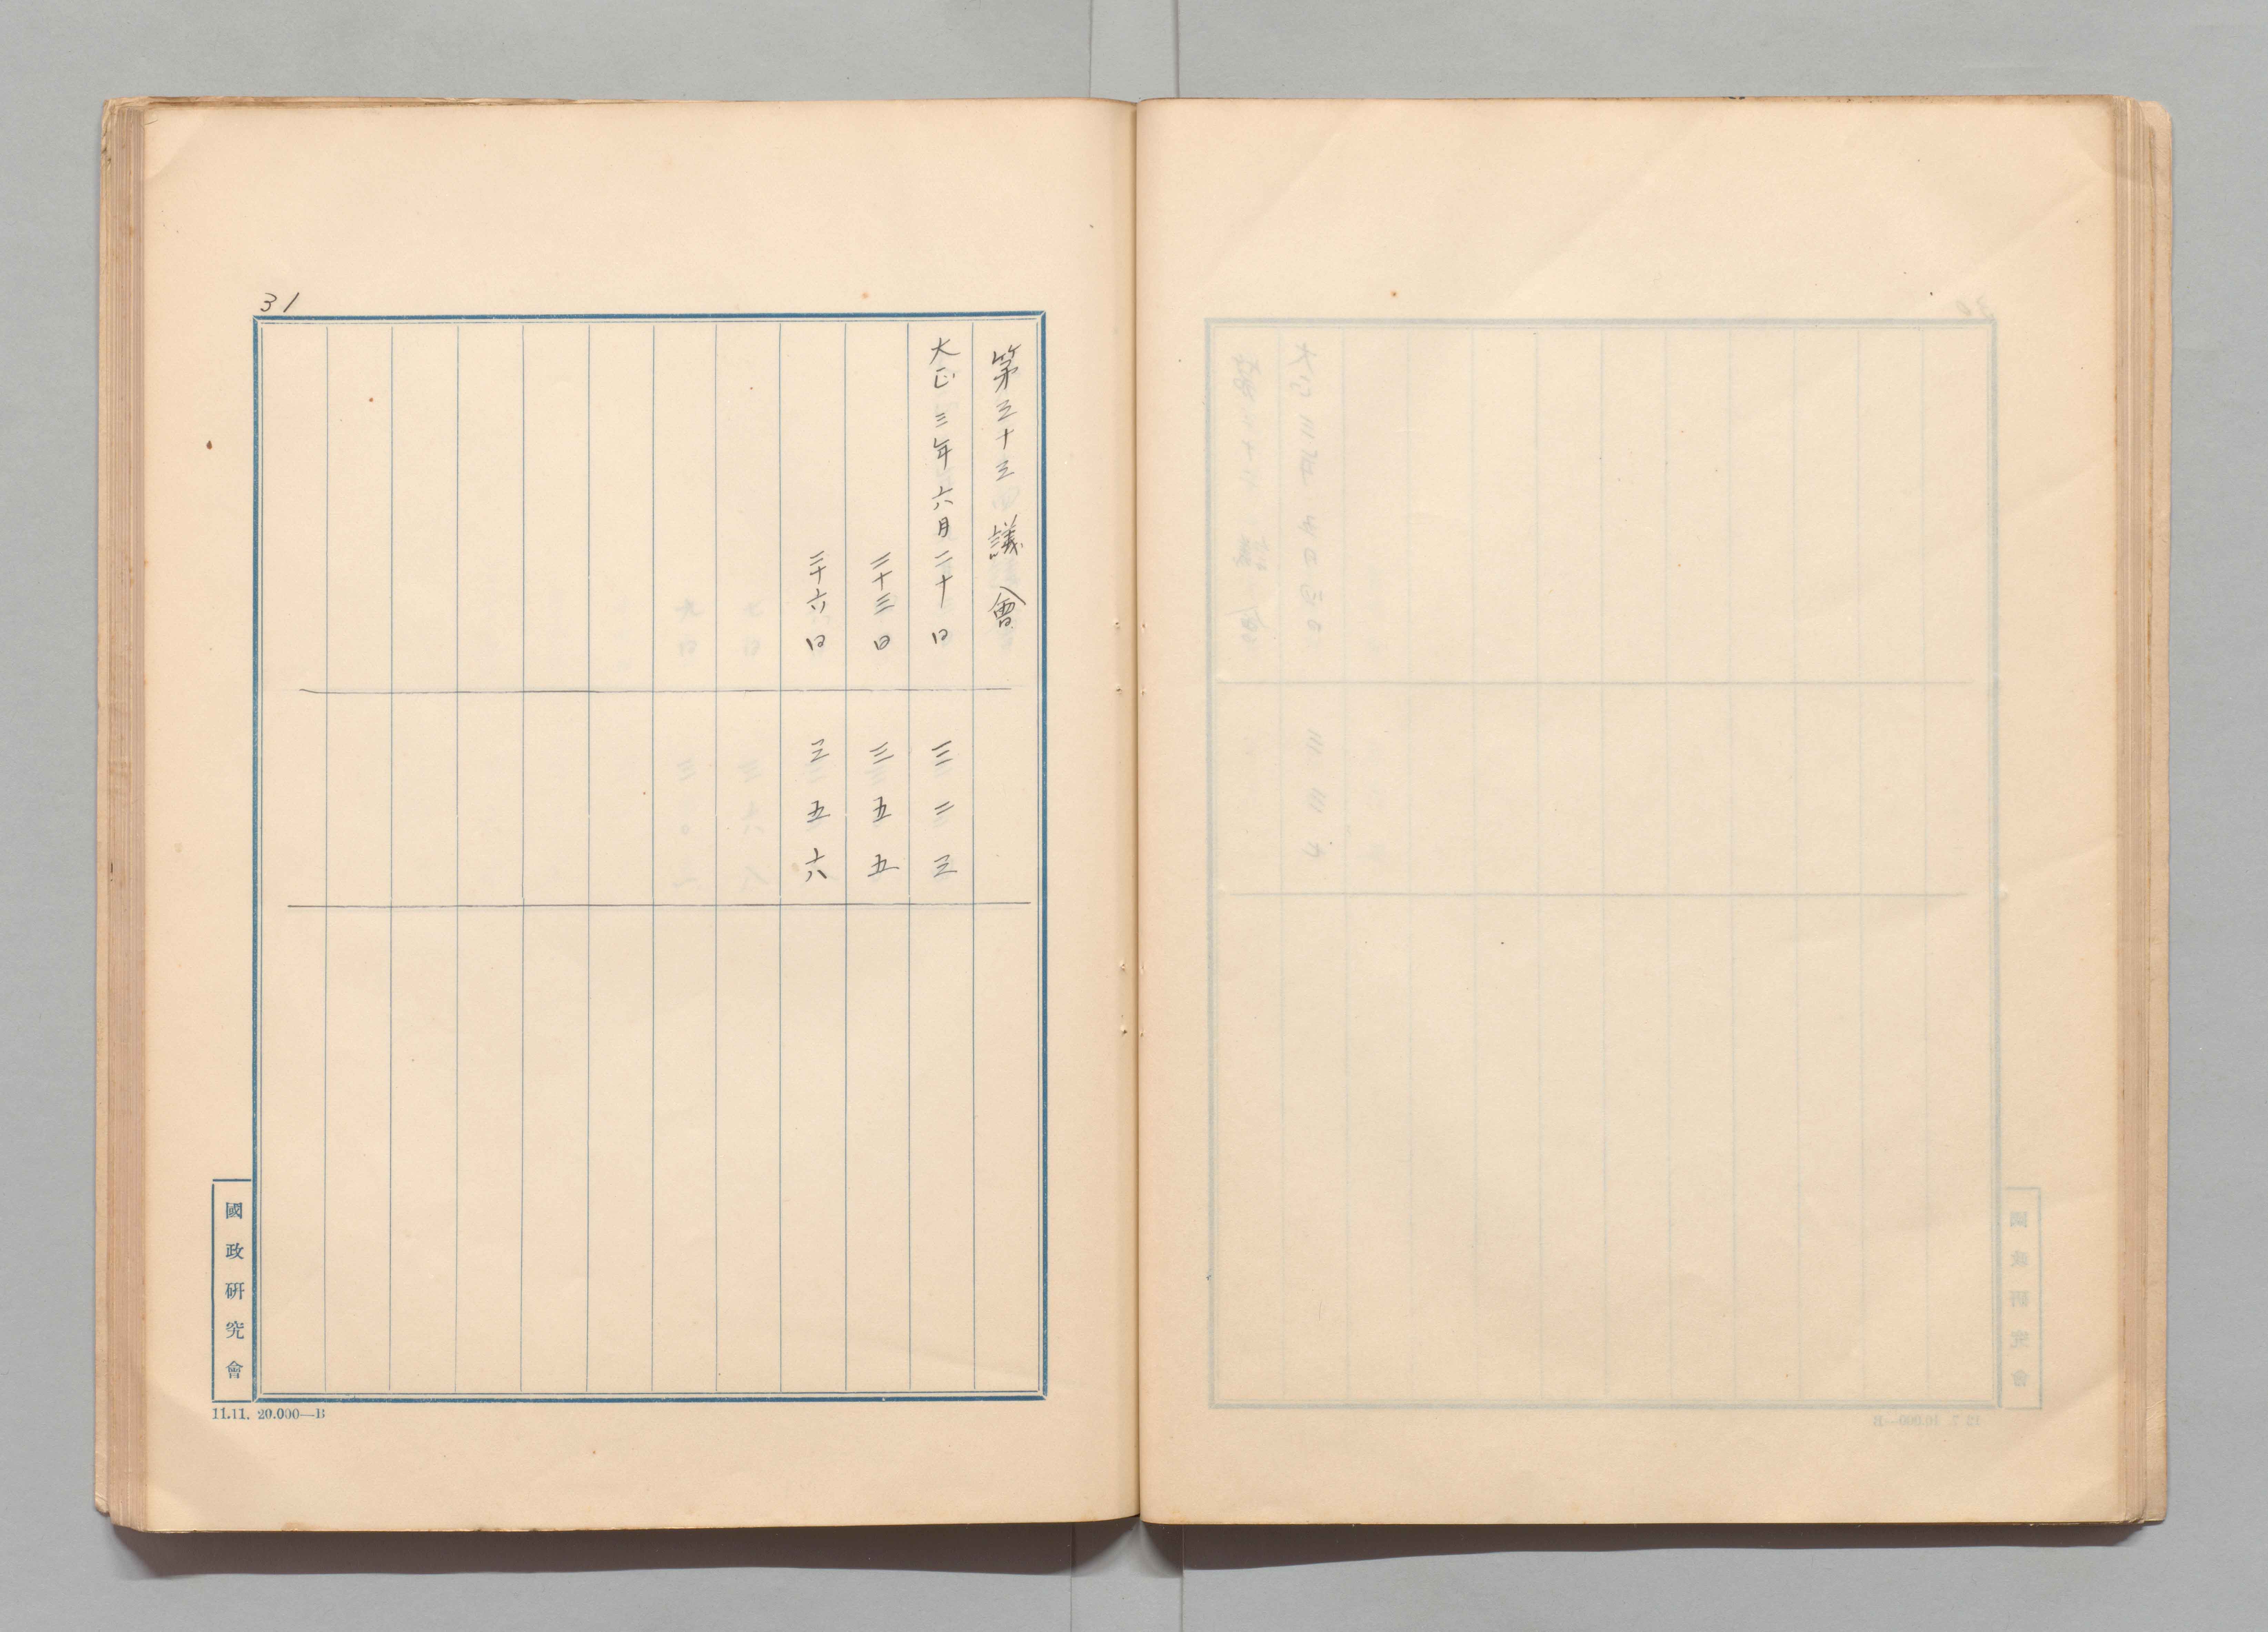 31
第三十三議會
大正三年六月二十日 三二三
二十三日 三五五
二十六日 三五六
國政研究會
11.11. 20.000—B